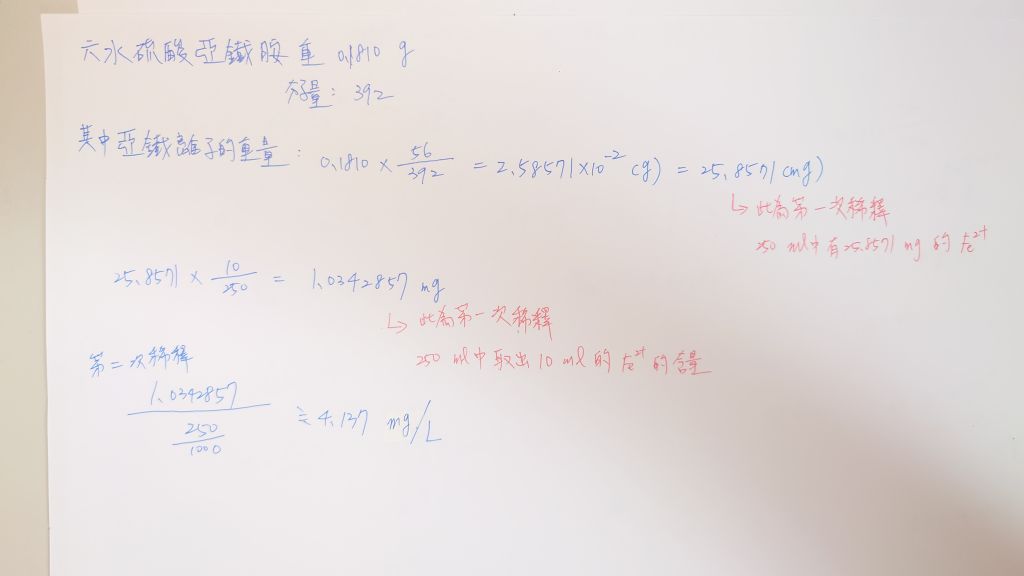 六水硫酸亞鐵胺重 0.1810 g
分子量: 392
其中亞鐵離子的重量: 0.1810 × 56/392 = 2.58571×10⁻² (g) = 25.8571 (mg)
↳ 此為第一次稀釋
250 ml中有25.8571 mg 的 Fe²⁺
25.8571 × 10/250 = 1.0342857 mg
↳ 此為第一次稀釋
250 ml中取出10 ml的 Fe²⁺的含量
第二次稀釋
1.0342857
250/1000
≒ 4.137 mg/L